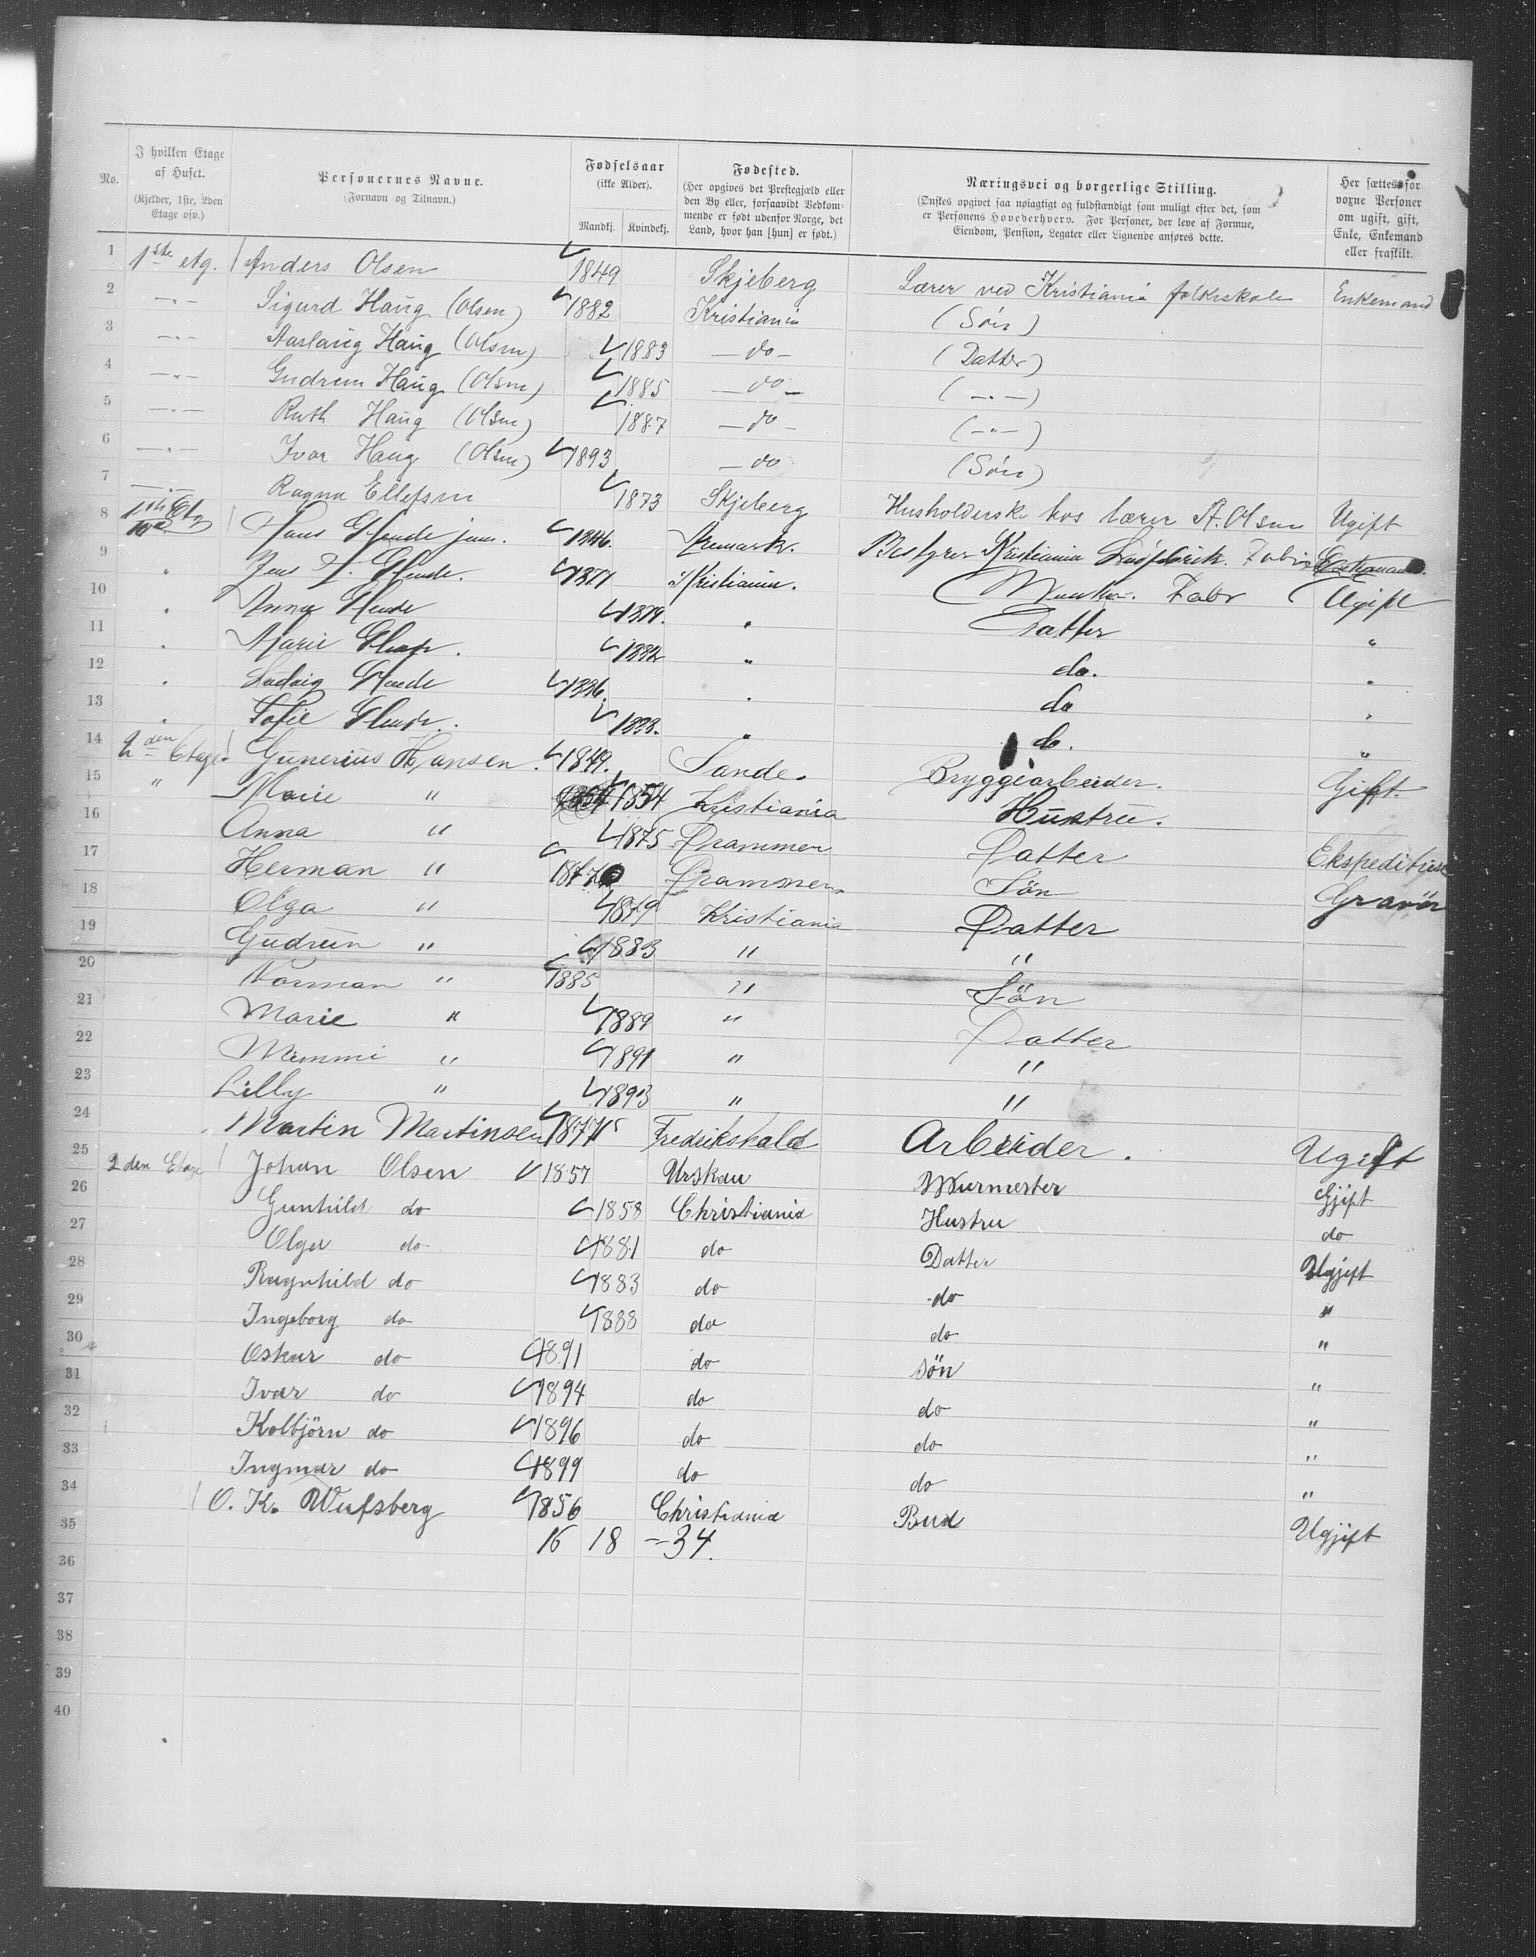 No. I hvilken Etage af Huset. (Kjelder, 1ste, 2den Etage osv.) Personernes Navne. (Fornavn og Tilnavn.) Fødselsaar (ikke Alder). Mandkj. Kvindekj. Fødested. (Her opgives det Prestegjæld eller den By eller, forsaavidt Vedkommende er født udenfor Norge, det Land, hvor han [hun] er født.) Næringsvei og borgerlige Stilling. (Ønskes opgivet saa nøiagtigt og fuldstændigt som muligt efter det, som er Personens Hovederhverv. For Personer, der leve af Formue, Eiendom, Pension, Legater eller Lignende anføres dette. Her sættes for voxne Personer om ugift, gift, Enke, Enkemand eller fraskilt.
1 1ste etg. Anders Olsen 1849 Skjeberg Lærer ved Kristiania folkeskole Enkemand
2 —„— Sigurd Haug (Olsen) 1882 Kristiania (Søn)
3 —„— Aaslaug Haug (Olsen) 1883 —do— (Datter)
4 —„— Gudrun Haug (Olsen) 1885 —do— (—„—)
5 —„— Ruth Haug (Olsen) 1887 —do— (—„—)
6 —„— Ivar Haug (Olsen) 1893 —do (Søn)
7 —„— Ragna Ellefsen 1873 Skjeberg Husholderske hos lærer A. Olsen Ugift
8 1ste Etg Hans Glende jun. 1846. Aremark. Bestyrer Kristiania
9 " Jens Glende. 1877 Kristiania. Ugift
10 " Anna Glende 1879. " Datter "
11 " Marie Glende. 1882 " do. "
12 " Ludvig Glende 1886. " do "
13 " Sofie Glende. 1888. " do. "
14 2den Etage Gunerius Hansen. 1849. Sande. Bryggearbeider. Gift.
15 " Marie " 1854 Kristiania Hustru.
16 Anna " 1875 Drammen Datter Ekspeditrise
17 Herman " Drammen Søn Gravör
18 Olga " 1879 Kristiania Datter
19 Gudrun " 1883 " "
20 Norman " 1885 " Søn
21 Marie " 1889 " Datter
22 Mimmi " 1891 " "
23 Lilly " 1893 " "
24 Martin Martinsen Fredrikshald Arbeider. Ugift
25 2den Etage Johan Olsen 1857 Urskau Murmester Gjift
26 Gunhild do 1858 Christiania Hustru do
27 Olga do 1881 do Datter Ugjift
28 Ragnhild do 1883 do do "
29 Ingeborg do 1888 do do "
30 Oskar do 1891 do Sön "
31 Ivar do 1894 do do "
32 Kolbjörn do 1896 do do "
33 Ingmar do 1899 do do "
34 O. K. Wulfsberg 1856 Christiania Bud Ugjift
35 16 18 = 34.
36
37
38
39
40